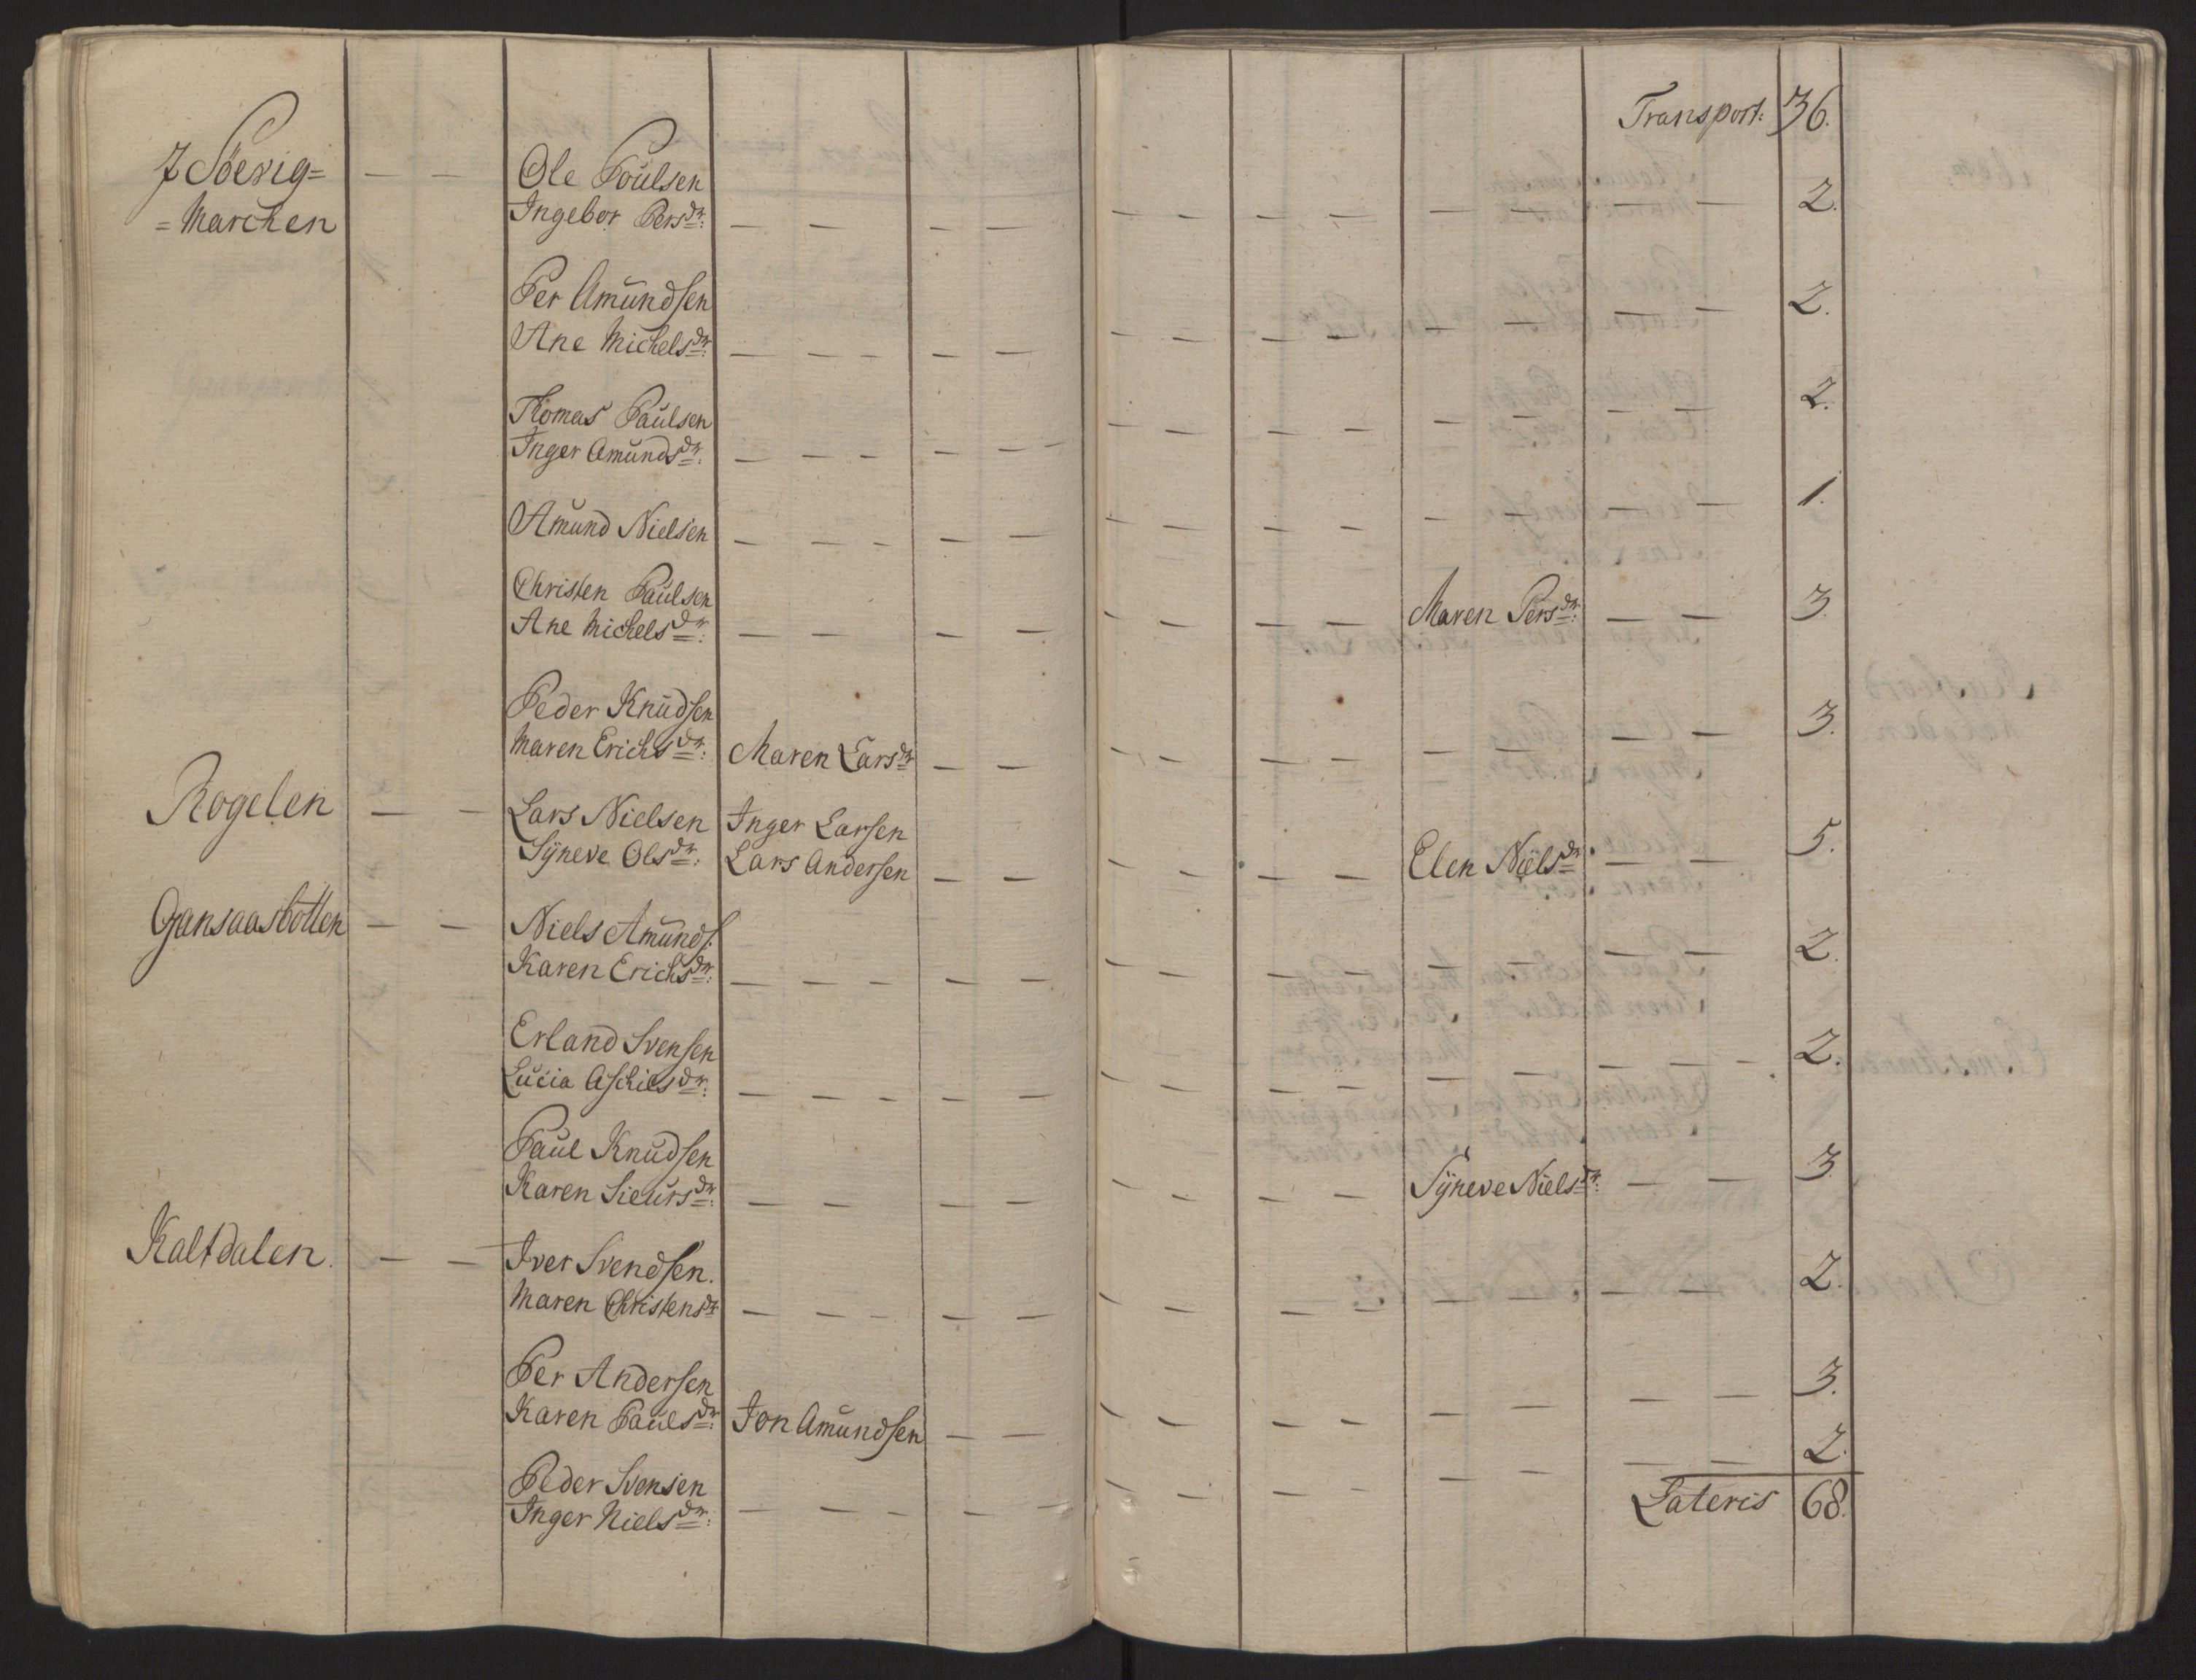 Transport: 36.
J Söevig= — — Ole Poülsen
=Marchen Ingebor Persdr: — — — — — — — — — — — — 2.
Per Amündsen
Ane Michelsdr: — — — — — — — — — — — — — 2.
Thomas Paülsen
Inger Amündsdr: — — — — — — — — — — — — — 2.
Amünd Nielsen — — — — — — — — — — — — — 1.
Christen Paülsen
Ane Michelsdr: — — — — — — — — Maren Persdr: — — 3.
Peder Knüdsen
Maren Erichsdr: Maren Larsdr — — — — — — — — — — 3.
Rogelen — — Lars Nielsen Inger Larsen
Sÿneve Olsdr: Lars Andersen — — — — — — Elen Nielsdr: — — 5.
Gansaasbotten — — Niels Amünds:
Karen Erichsdr: — — — — — — — — — — — — — 2.
Erland Svensen
Lücia Aschilsdr: — — — — — — — — — — — — — — 2.
Paül Knüdsen
Karen Sieürsdr: — — — — — — — — Sÿneve Nielsdr: — — 3.
Kaltdalen. — — Iver Svendsen.
Maren Christensdr — — — — — — — — — — — — — 2.
Per Andersen
Karen Paülsdr: Jon Amündsen — — — — — — — — — — 3.
Peder Svensen
Inger Nielsdr: — — — — — — — — — — — — — 2.
Lateris 68.